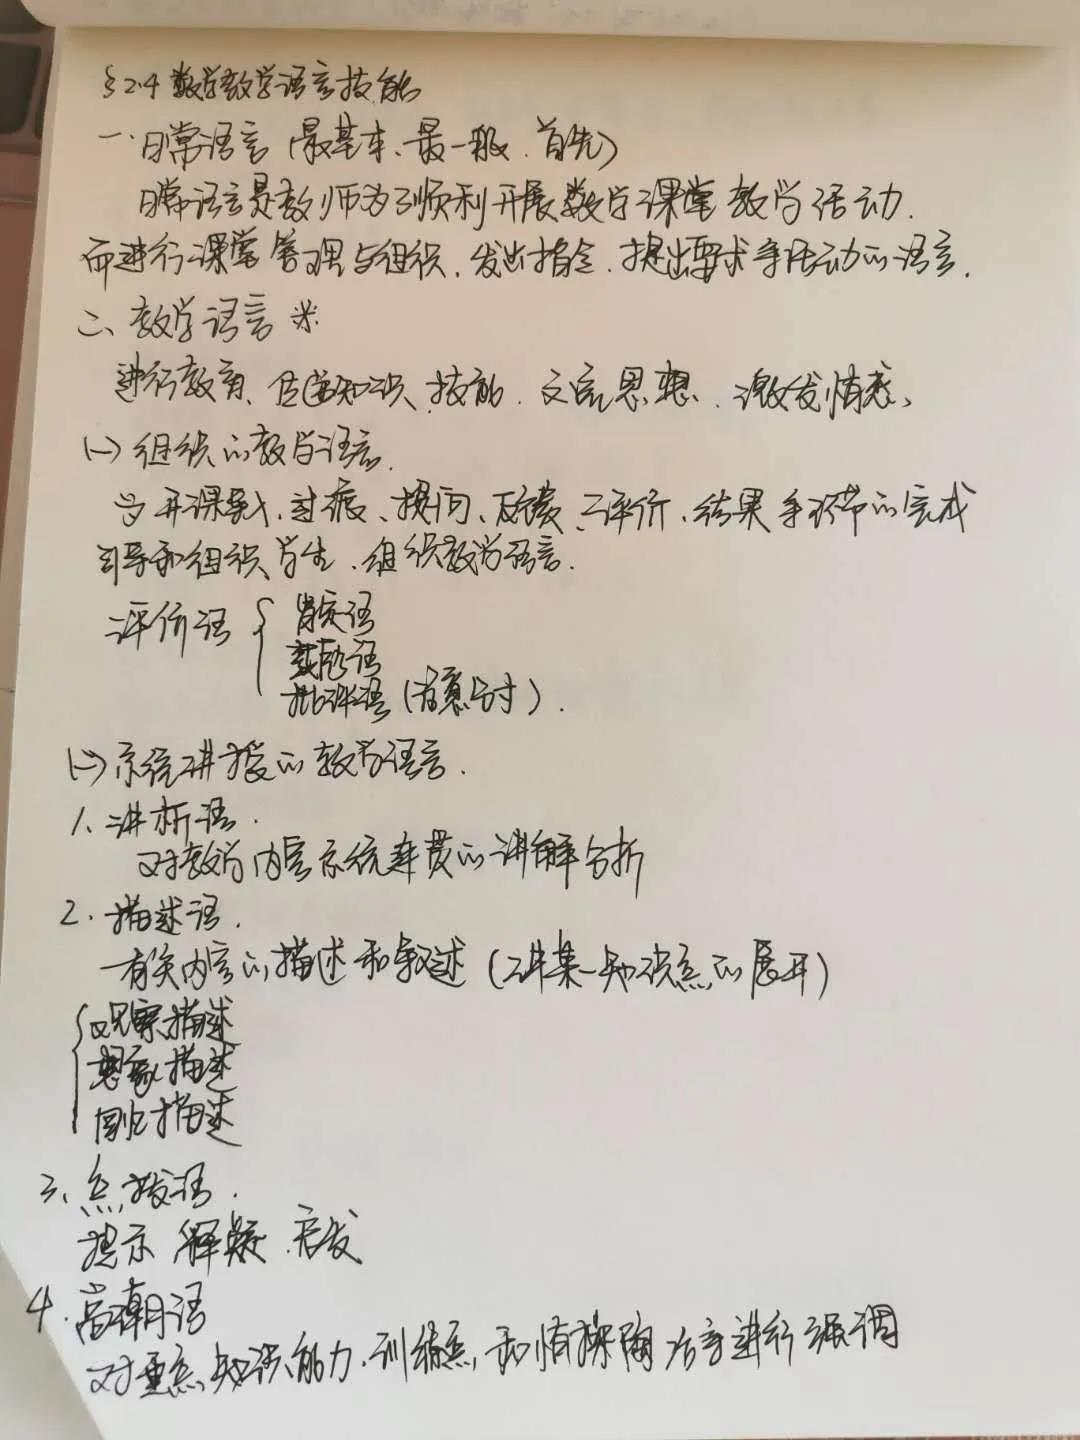 §2.4 数学教学语言技能
一.日常语言(最基本、最一般.首先)
日常语言是教师为了顺利开展数学课堂教学活动.
而进行课堂管理与组织.发出指令.提出要求等活动的语言.
二、教学语言 ※
进行教育、传递知识、技能.交流思想.激发情感、
(一)组织的教学语言.
开课导入.过渡、提问、反馈、评价.结果等环节的完成
引导和组织学生.组织教学语言.
评价语
肯定语
鼓励语
批评语(注意分寸).
(二)系统讲授的教学语言.
1、讲析语.
对教学内容系统连贯的讲解分析
2.描述语.
有关内容的描述和叙述(讲某一知识点的展开)
观察描述
想象描述
回忆描述
3、点拨语.
提示 释疑.启发
4.高潮语
对重点知识能力.训练点和情操陶冶等进行强调